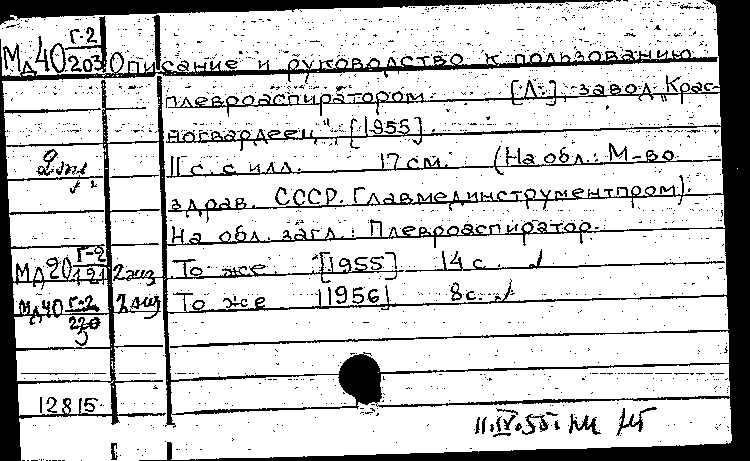 Мд40 Г-2/203 Описание и руководство к пользованию
плевроаспиратором. [Л.], завод „Крас-
ногвардеец", [1955].
2 экз. 11 с. с илл. 17 см. (На обл.: М-во
здрав. СССР. Главмединструментпром).
На обл. загл.: Плевроаспиратор.
Мд20 Г-2/121 2 экз То же [1955] 14 с.
Мд40 Г-2/220 2 экз То же [1956] 8 с.
12815
11.IV.55.